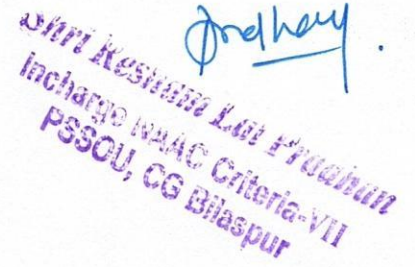 Pradhan
Shri Resham Lal Pradhan
Incharge NAAC Criteria-VII
PSSOU, CG Bilaspur